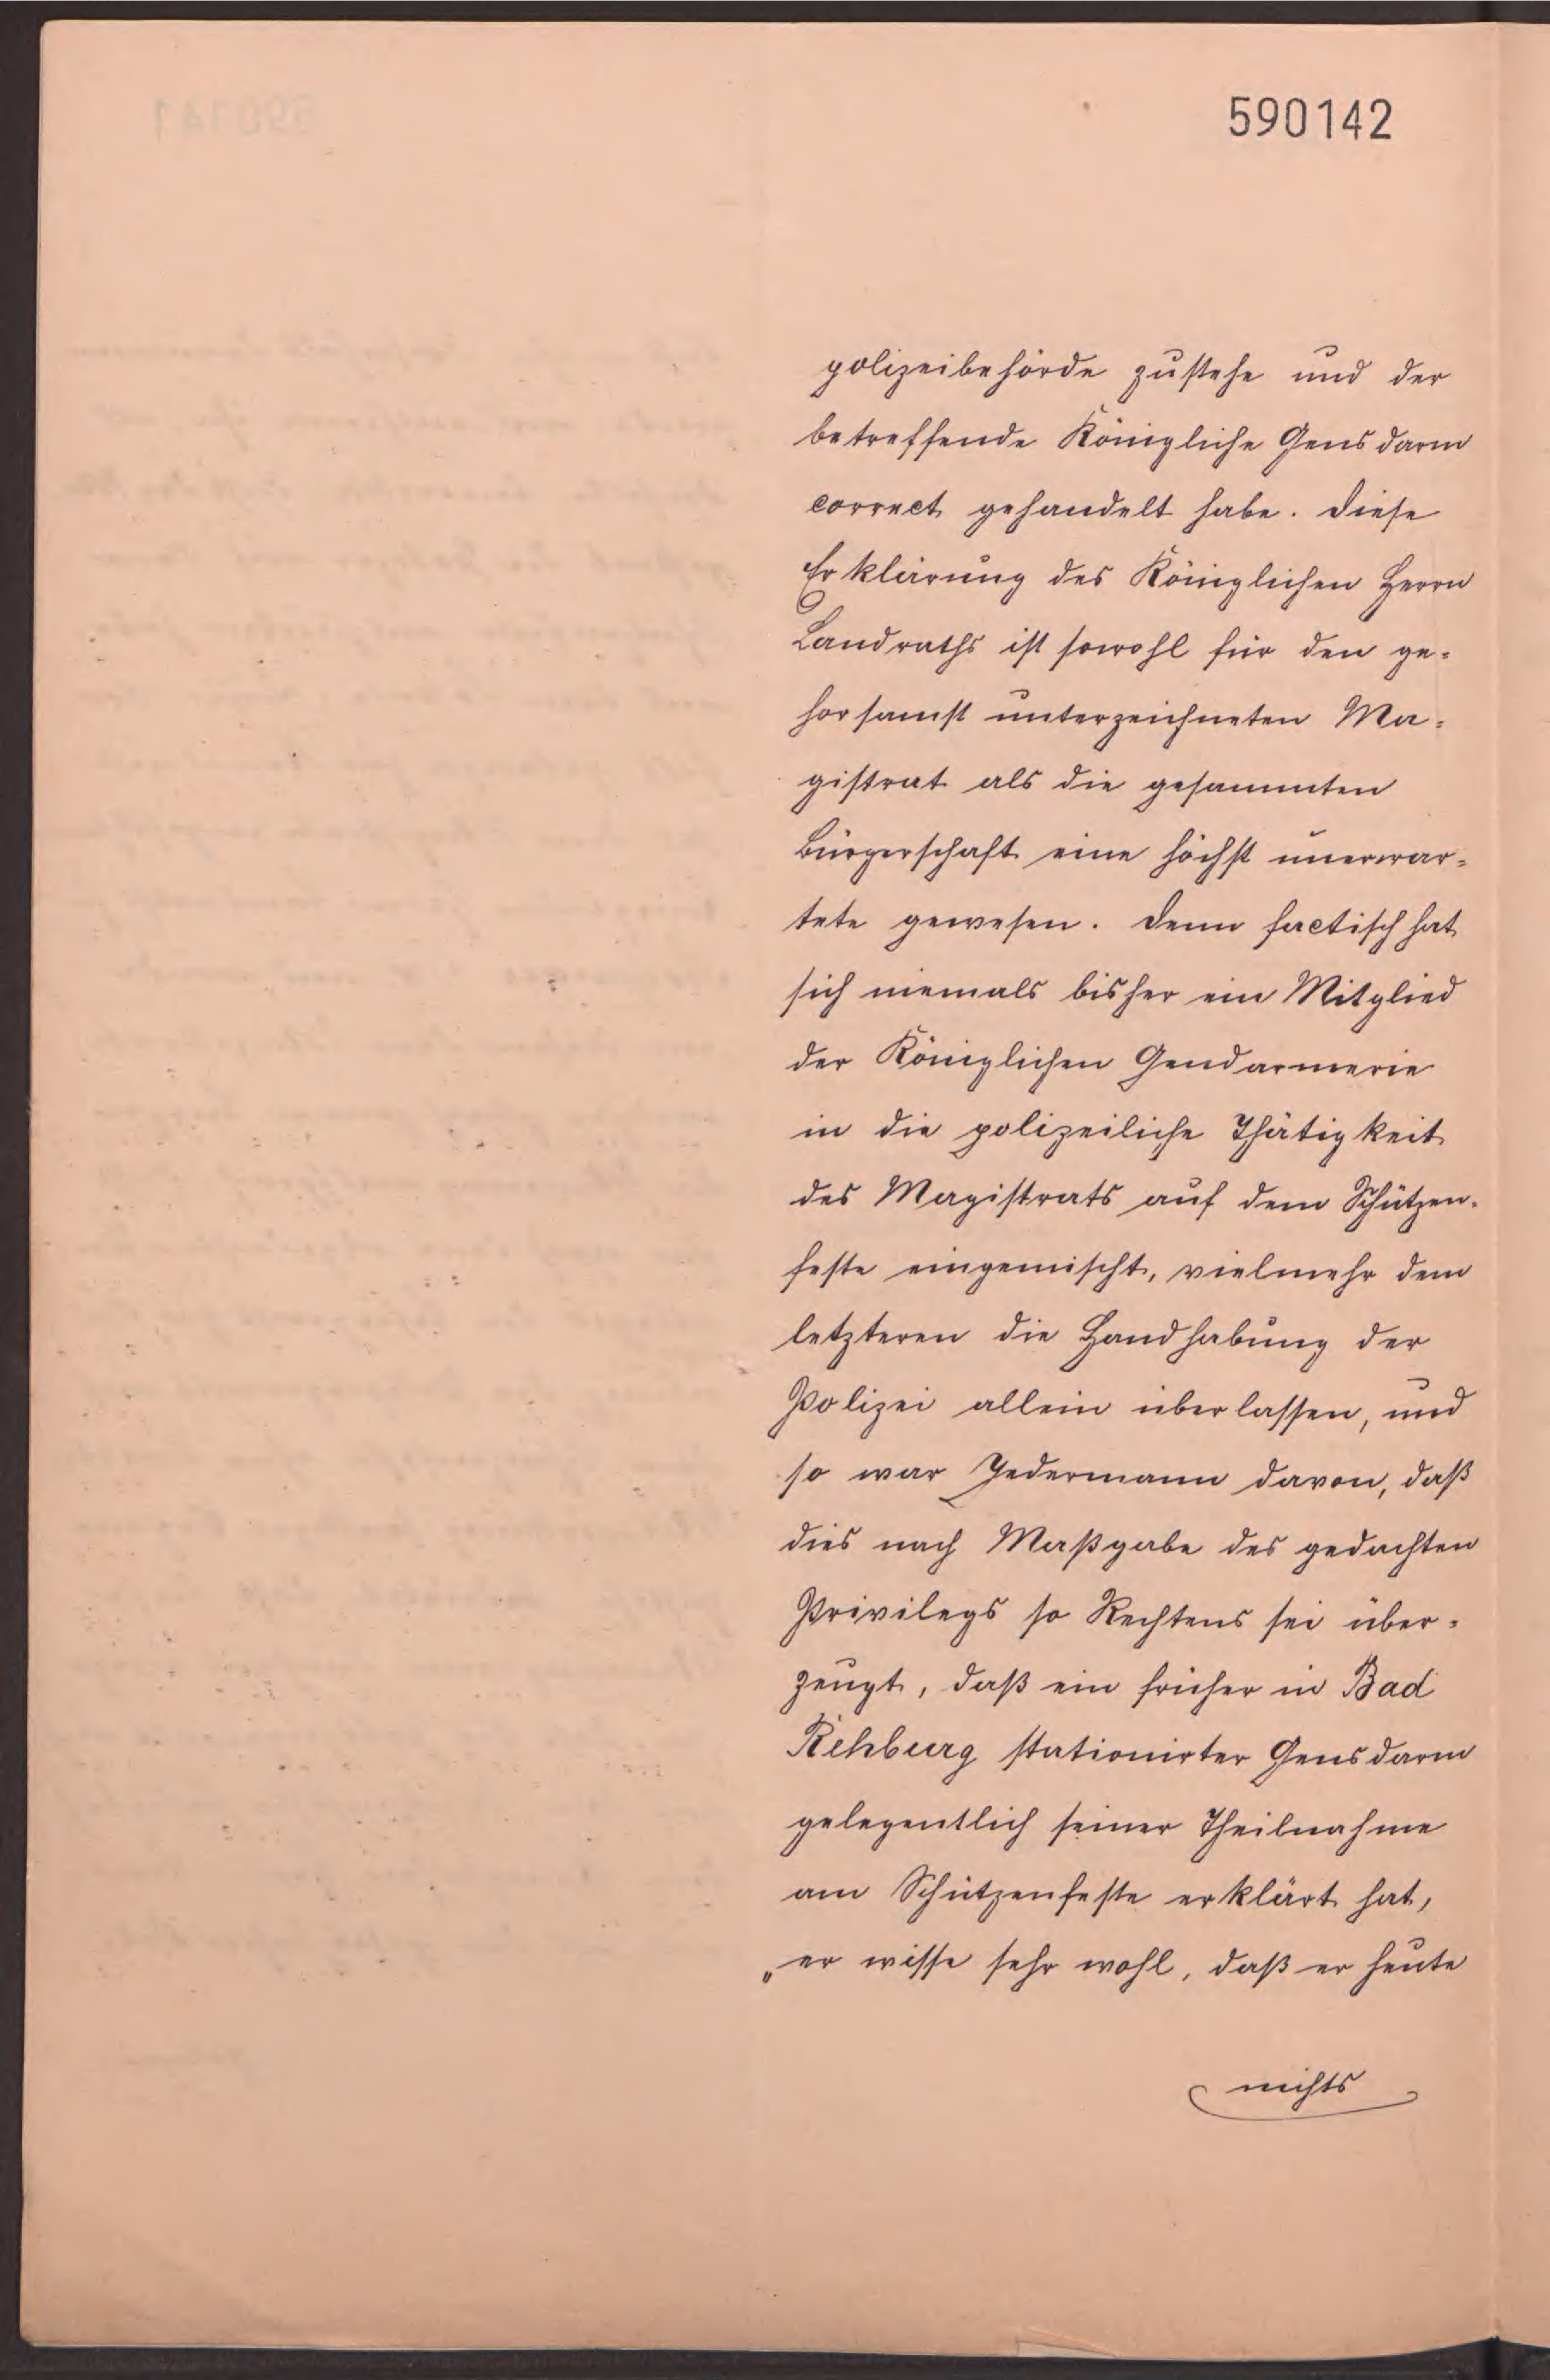 590142
polizeibehörde zustehe und der
betreffende Königliche Gensdarm
correct gehandelt habe. Diese
Erklärung des Königlichen Herrn
Landraths ist sowohl für den ge-
horsamst unterzeichneten Ma-
gistrat als die gesammten
Bürgerschaft eine höchst unerwar-
tete gewesen. Denn factisch hat
sich niemals bisher ein Mitglied
der Königlichen Gendarmerie
in die polizeiliche Thätigkeit
des Magistrats auf dem Schützen-
feste eingemischt, vielmehr dem
letzteren die Handhabung der
Polizei allein überlassen, und
so war Jedermann davon, daß
dies nach Maßgabe des gedachten
Privilegs so Rechtens sei über-
zeugt, daß ein früher in Bad
Rehburg stationirter Gensdarm
gelegentlich seiner Theilnahme
am Schützenfeste erklärt hat,
„er wisse sehr wohl, daß er heute
nichts